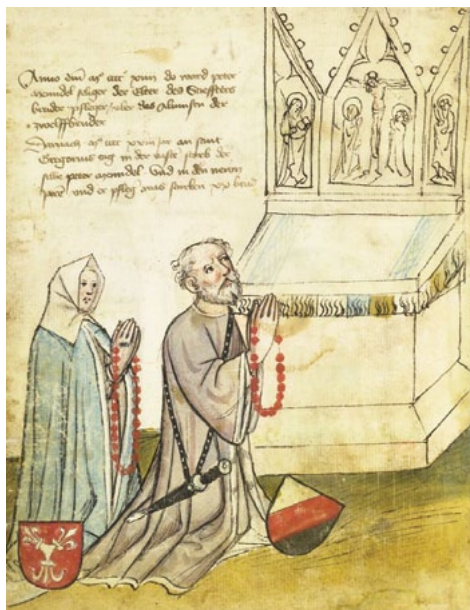 Anno dm mº cccc do ward peter
mendel seliger der Elter des Steyffters
bruder pfleger uber das Almusen der
zwelffbruder
Darnach mº cccc jar an sant
Gregorius tag in der vaste starb der
selbe peter mendel. Und in den
jare und er pfleg was sturben brud